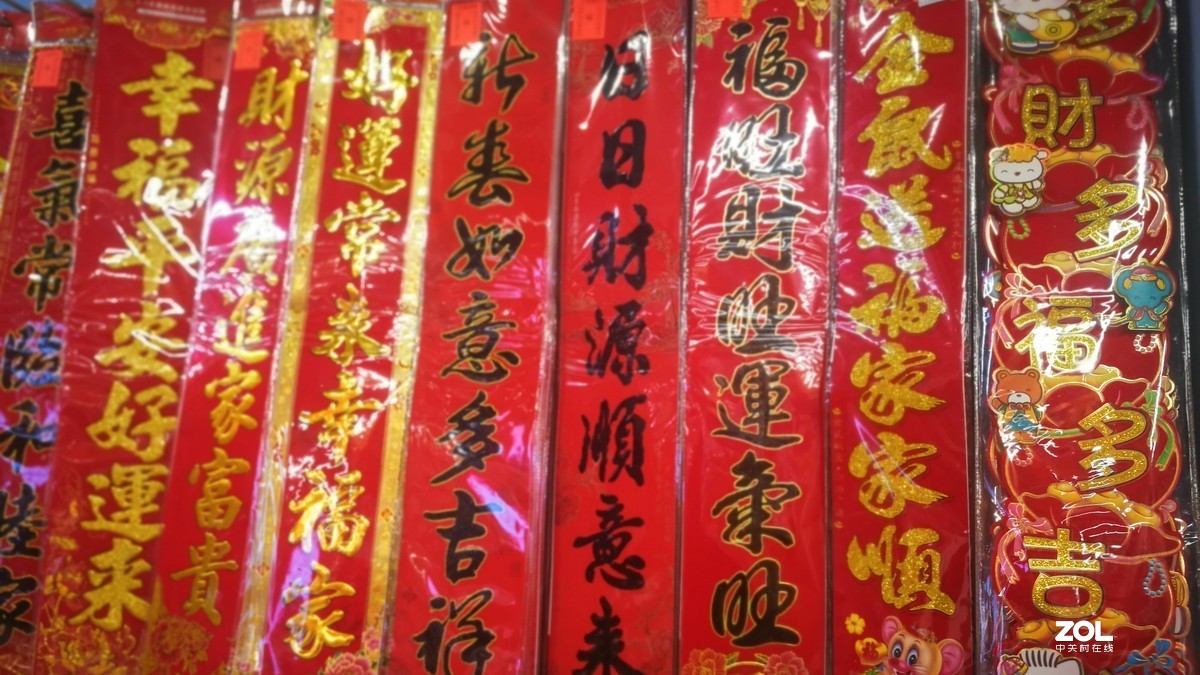 喜氣常臨和睦家
幸福平安好運来
財源廣進家富貴
好運常来幸福家
新春如意多吉祥
日日財源順意来
福旺財旺運氣旺
金鼠送福家家順
多財多福多吉
ZOL
中关村在线